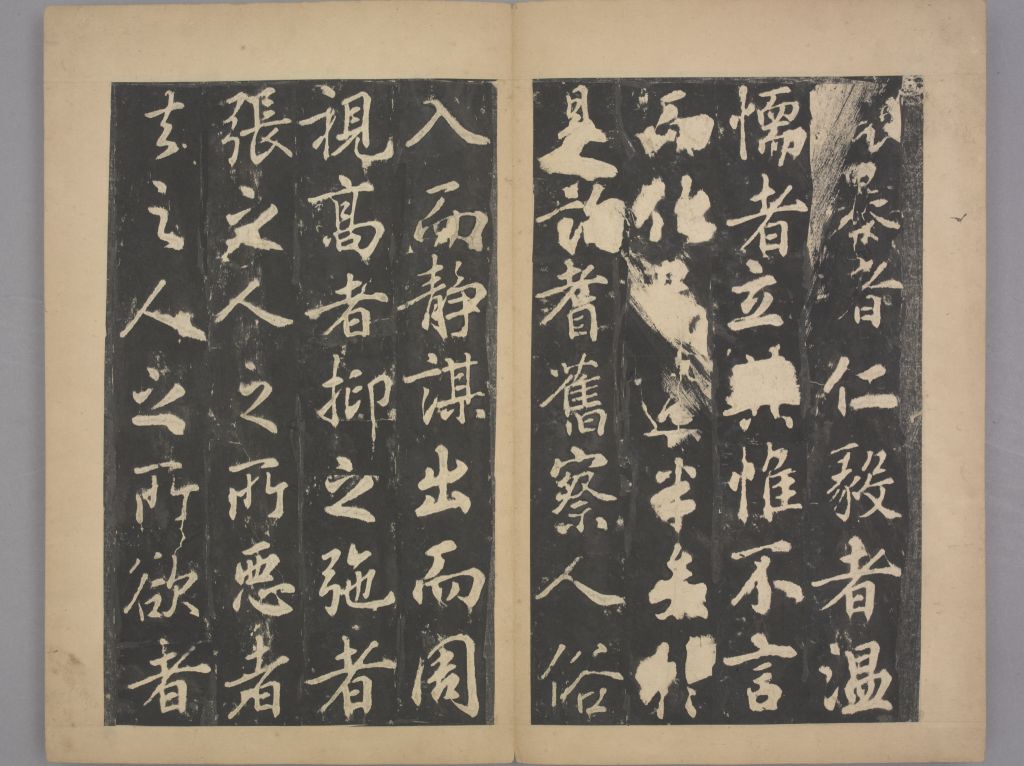 暴者仁毅者温
懦者立其惟不言
而化半矣於
是訪耆舊察人俗
入而静謀出而周
視高者抑之弛者
張之人之所惡者
去之人之所欲者